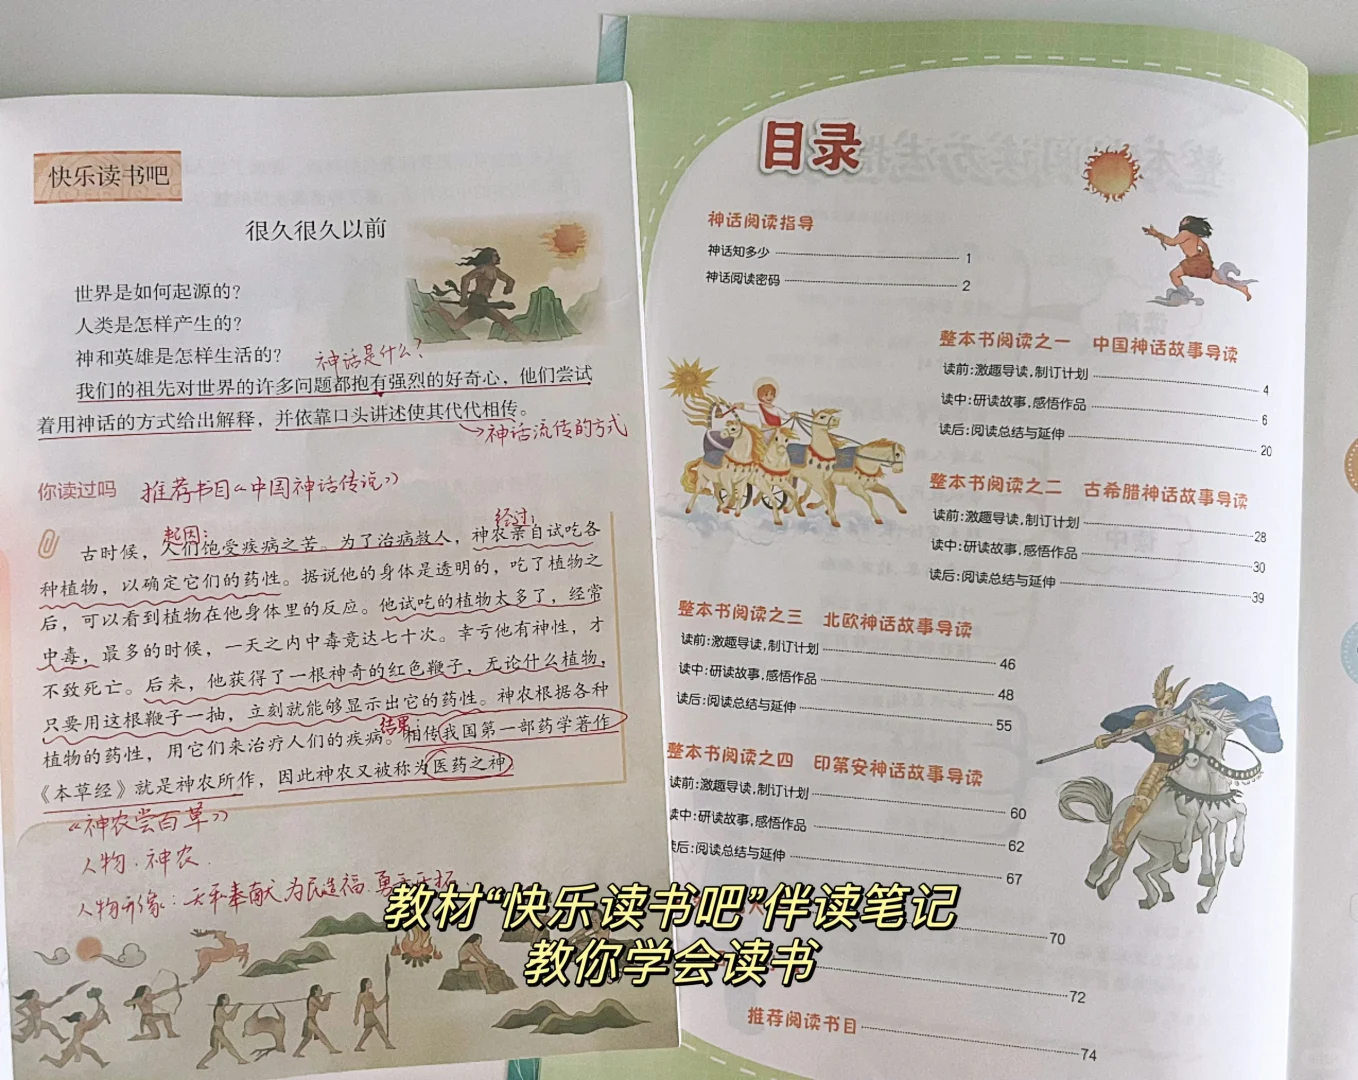 快乐读书吧
很久很久以前
世界是如何起源的？
人类是怎样产生的？
神和英雄是怎样生活的？
神话是什么？
我们的祖先对世界的许多问题都抱有强烈的好奇心，他们尝试
着用神话的方式给出解释，并依靠口头讲述使其代代相传。
神话流传的方式
你读过吗
推荐书目《中国神话传说》
起因：
经过：
古时候，人们饱受疾病之苦。为了治病救人，神农亲自试吃各
种植物，以确定它们的药性。据说他的身体是透明的，吃了植物之
后，可以看到植物在他身体里的反应。他试吃的植物太多了，经常
中毒，最多的时候，一天之内中毒竟达七十次。幸亏他有神性，才
不致死亡。后来，他获得了一根神奇的红色鞭子，无论什么植物，
只要用这根鞭子一抽，立刻就能够显示出它的药性。神农根据各种
结果：
植物的药性，用它们来治疗人们的疾病。相传我国第一部药学著作
《本草经》就是神农所作，因此神农又被称为医药之神
《神农尝百草》
人物：神农
人物形象：无私奉献 为民造福
目录
神话阅读指导
神话知多少 1
神话阅读密码 2
整本书阅读之一 中国神话故事导读
读前：激趣导读，制订计划 4
读中：研读故事，感悟作品 6
读后：阅读总结与延伸 20
整本书阅读之二 古希腊神话故事导读
读前：激趣导读，制订计划 28
读中：研读故事，感悟作品 30
读后：阅读总结与延伸 39
整本书阅读之三 北欧神话故事导读
读前：激趣导读，制订计划 46
读中：研读故事，感悟作品 48
读后：阅读总结与延伸 55
整本书阅读之四 印第安神话故事导读
读前：激趣导读，制订计划 60
读中：研读故事，感悟作品 62
读后：阅读总结与延伸 67
70
72
推荐阅读书目 74
教材“快乐读书吧”伴读笔记
教你学会读书